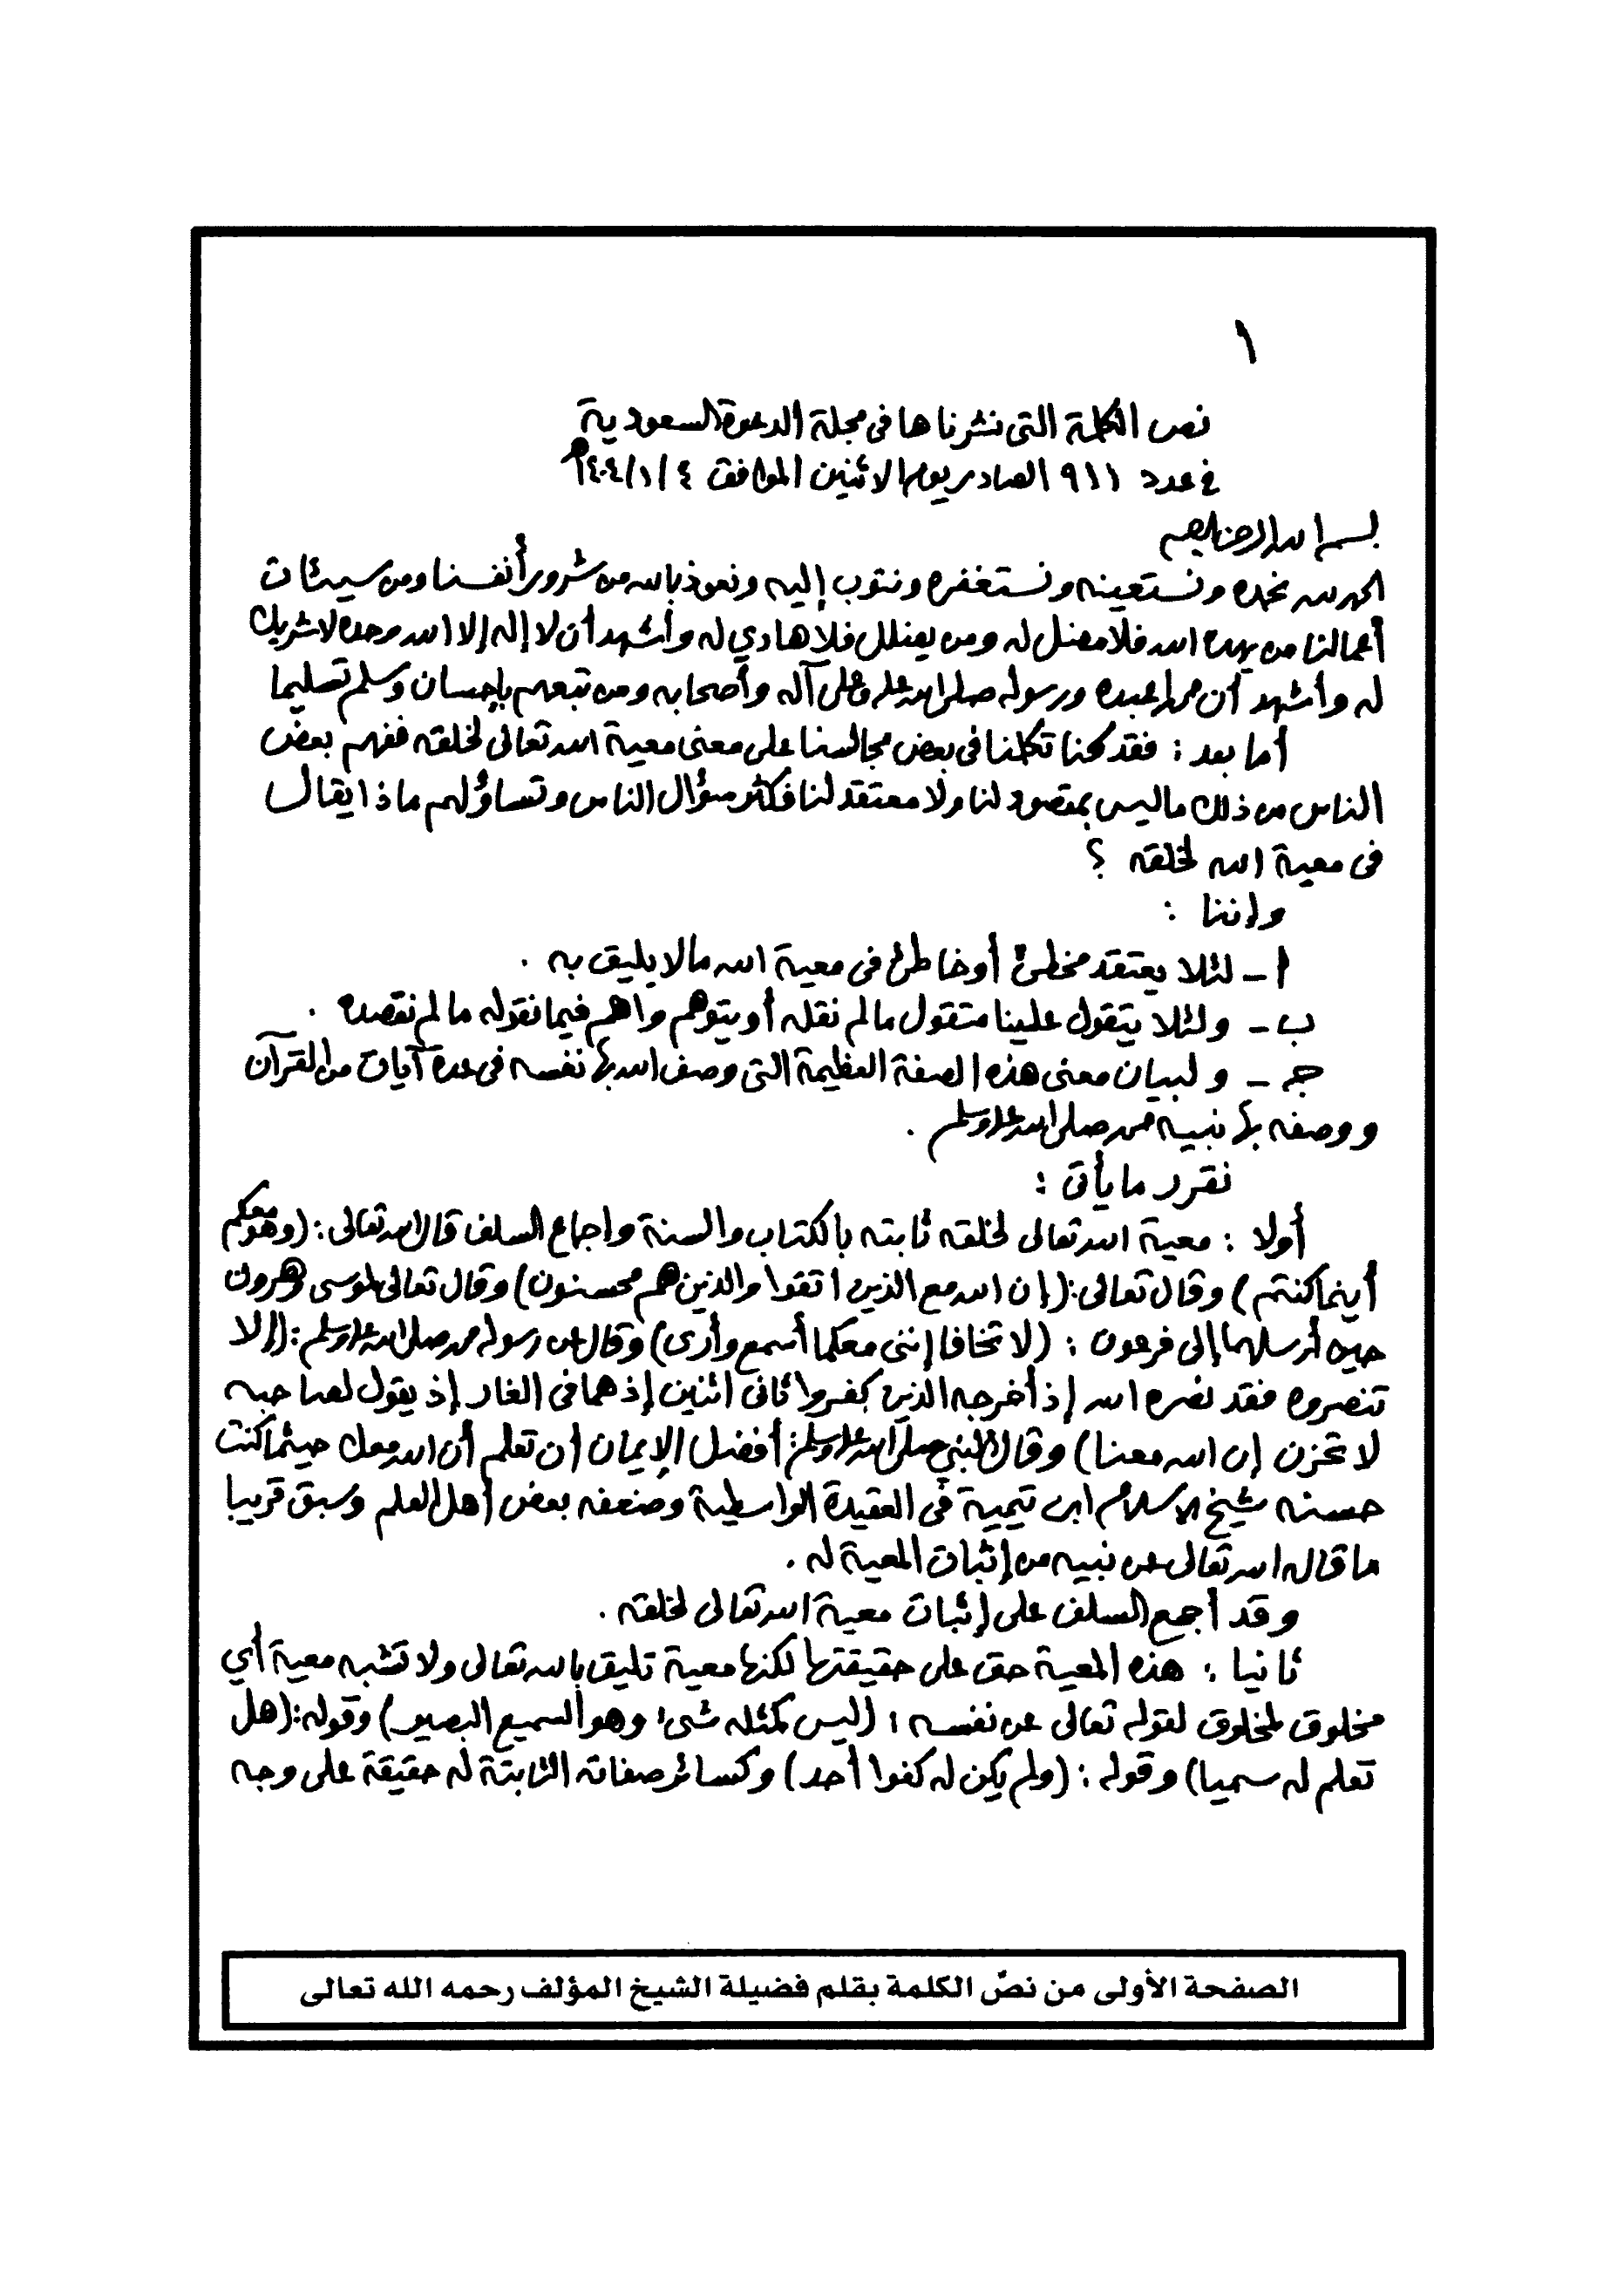 ١
نص الكلمة التى نشرناها فى مجلة الدعوة السعودية
فى عدد ٩١١ الصادر يوم الاثنين الموافق ٤/١/١٤٠٤هـ
بسم الله الرحمن الرحيم
الحمد لله نحمده ونستعينه ونستغفره ونتوب إليه ونعوذ بالله من شرور أنفسنا ومن سيئات
أعمالنا من يهده الله فلا مضل له ومن يضلل فلا هادي له وأشهد أن لا إله إلا الله وحده لا شريك
له وأشهد أن محمدا عبده ورسوله صلى الله عليه وعلى آله وأصحابه ومن تبعهم بإحسان وسلم تسليما
أما بعد : فقد كنا تكلمنا فى بعض مجالسنا على معنى معية الله تعالى لخلقه ففهم بعض
الناس من ذلك ما ليس بمقصود لنا ولا معتقد لنا فكثر سؤال الناس وتساؤلهم ماذا يقال
فى معية الله لخلقه ؟
وإننا :
ا - لئلا يعتقد مخطئ أو خاطئ فى معية الله مالا يليق به .
ب - ولئلا يتقول علينا متقول مالم نقله أو يتوهم واهم فيما نقوله ما لم نقصده .
جـ - ولبيان معنى هذه الصفة العظيمة التى وصف الله بها نفسه فى عدة آيات من القرآن
ووصفه بها نبيه محمد صلى الله عليه وسلم .
نقرر ما يأتى :
أولا : معية الله تعالى لخلقه ثابته بالكتاب والسنة واجماع السلف قال الله تعالى : (وهو معكم
أينما كنتم) وقال تعالى : (إن الله مع الذين اتقوا والذين هم محسنون) وقال تعالى لموسى وهرون
حين أرسلهما إلى فرعون : (لا تخافا إننى معكما أسمع وأرى) وقال عن رسوله محمد صلى الله عليه وسلم : (إلا
تنصروه فقد نصره الله إذ أخرجه الذين كفروا ثانى اثنين إذ هما فى الغار إذ يقول لصاحبه
لا تحزن إن الله معنا) وقال النبي صلى الله عليه وسلم : أفضل الإيمان أن تعلم أن الله معك حيثما كنت
حسنه شيخ الاسلام ابن تيمية فى العقيدة الواسطية وضعفه بعض أهل العلم وسبق قريبا
ما قاله الله تعالى عن نبيه من إثبات المعية له .
وقد أجمع السلف على إثبات معية الله تعالى لخلقه .
ثانيا : هذه المعية حق على حقيقتها لكنها معية تليق بالله تعالى ولا تشبه معية أي
مخلوق لمخلوق لقوله تعالى عن نفسه : (ليس كمثله شىء وهو السميع البصير) وقوله : (هل
تعلم له سميا) وقوله : (ولم يكن له كفوا أحد) وكسائر صفاته الثابتة له حقيقة على وجه
الصفحة الأولى من نصّ الكلمة بقلم فضيلة الشيخ المؤلف رحمه الله تعالى